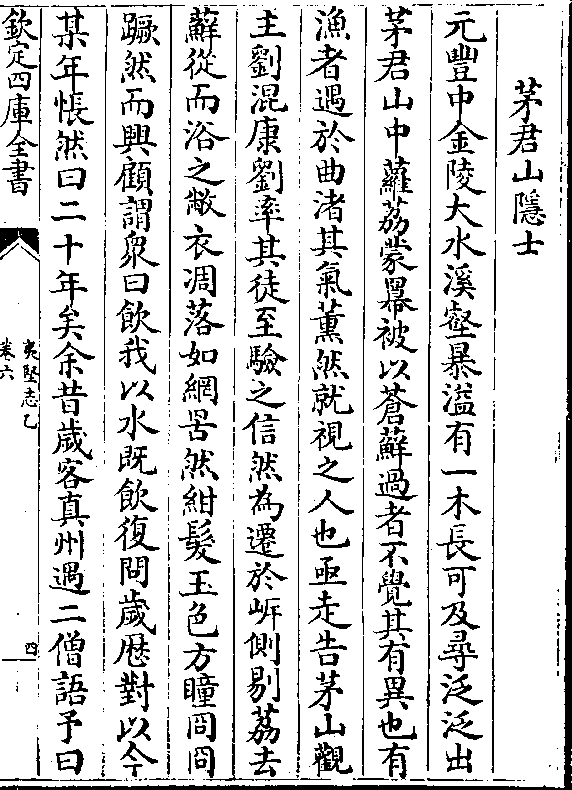 茅君山隱士
元豐中金陵大水溪壑暴溢有一木長可及尋泛泛出
茅君山中蘿荔蒙羃被以蒼蘚過者不覺其有異也有
漁者遇於曲渚其氣薫然就視之人也亟走告茅山觀
主劉混康劉率其徒至驗之信然為遷於㟁側剔荔去
蘚從而浴之敝衣凋落如網罟然紺髮玉色方瞳冏冏
蹶然而興顧謂衆曰飲我以水既飲復問歲厯對以今
某年悵然曰二十年矣余昔歲客真州遇二僧語予曰
欽定四庫全書
夷堅志乙
卷六
四